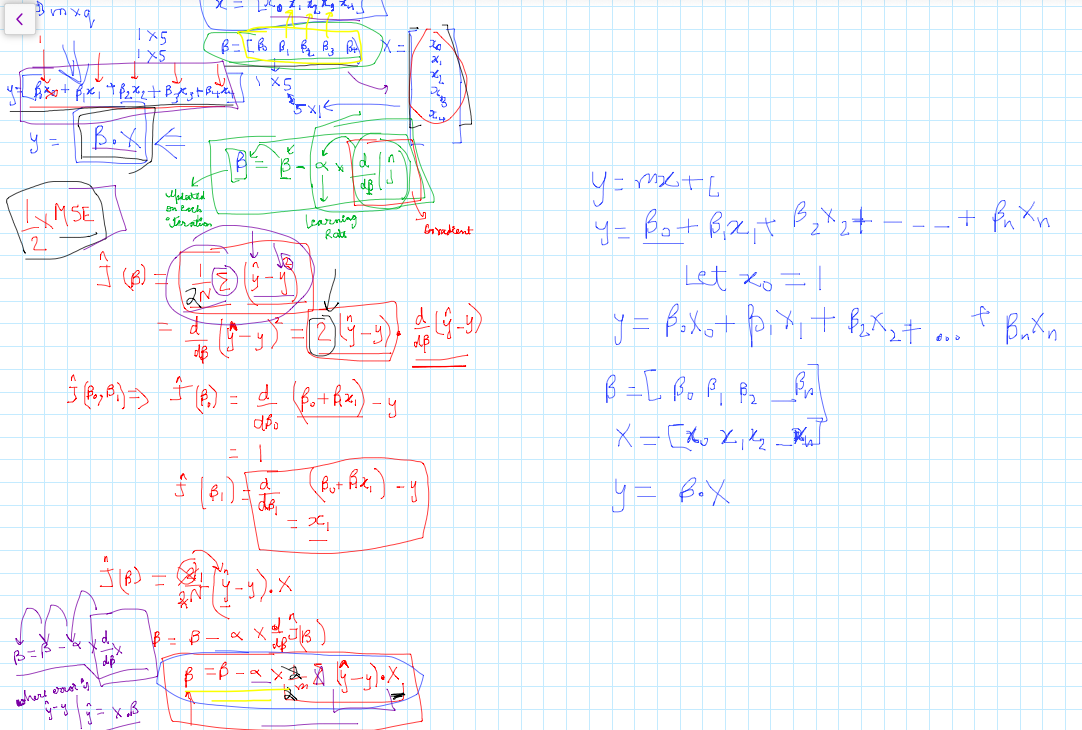 m x q
x = [x₀ x₁ x₂ x₃ x₄]
1 x 5
1 x 5
β = [β₀ β₁ β₂ β₃ β₄]
X = [x₀ x₁ x₂ x₃ x₄]
1 x 5
5 x 1
y = β₀x₀ + β₁x₁ + β₂x₂ + β₃x₃ + β₄x₄
y = β.X
β = β - α x d/dβ (Ĵ)
Updated on each iteration
Learning Rate
Gradient
1/2 x MSE
Ĵ(β) = 1/2N Σ (ŷ - y)²
= d/dβ (ŷ - y)² = 2 (ŷ - y) . d/dβ (ŷ - y)
Ĵ(β₀, β₁) => Ĵ(β₀) = d/dβ₀ (β₀ + β₁x₁) - y
= 1
Ĵ(β₁) = d/dβ₁ (β₀ + β₁x₁) - y
= x₁
Ĵ(β) = 2/2N (ŷ - y).X
β = β - α x d/dβ Ĵ(β)
β = β - α x (ŷ - y).X
β = β - α x d/dβ x
where error is
ŷ - y | ŷ = X.β
y = mx + c
y = β₀ + β₁x₁ + β₂x₂ + - - - + βₙxₙ
Let x₀ = 1
y = β₀x₀ + β₁x₁ + β₂x₂ + ... + βₙxₙ
β = [β₀ β₁ β₂ _ βₙ]
X = [x₀ x₁ x₂ _ xₙ]
y = β.X